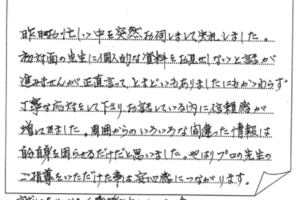 昨日はお忙しい中を突然お伺しまして失礼しました。
初対面の先生に個人的な資料をお見せしないと話が
進みませんが正直言って、とまどいもありましたにもかかわらず
丁寧な応対をして下さりお話している内に信頼感が
増してきました。周囲からのいろいろな間違った情報は
自分自身を困らせるだけだと思いました。やはりプロの先生の
ご指導をいただけた事は安心感につながります。